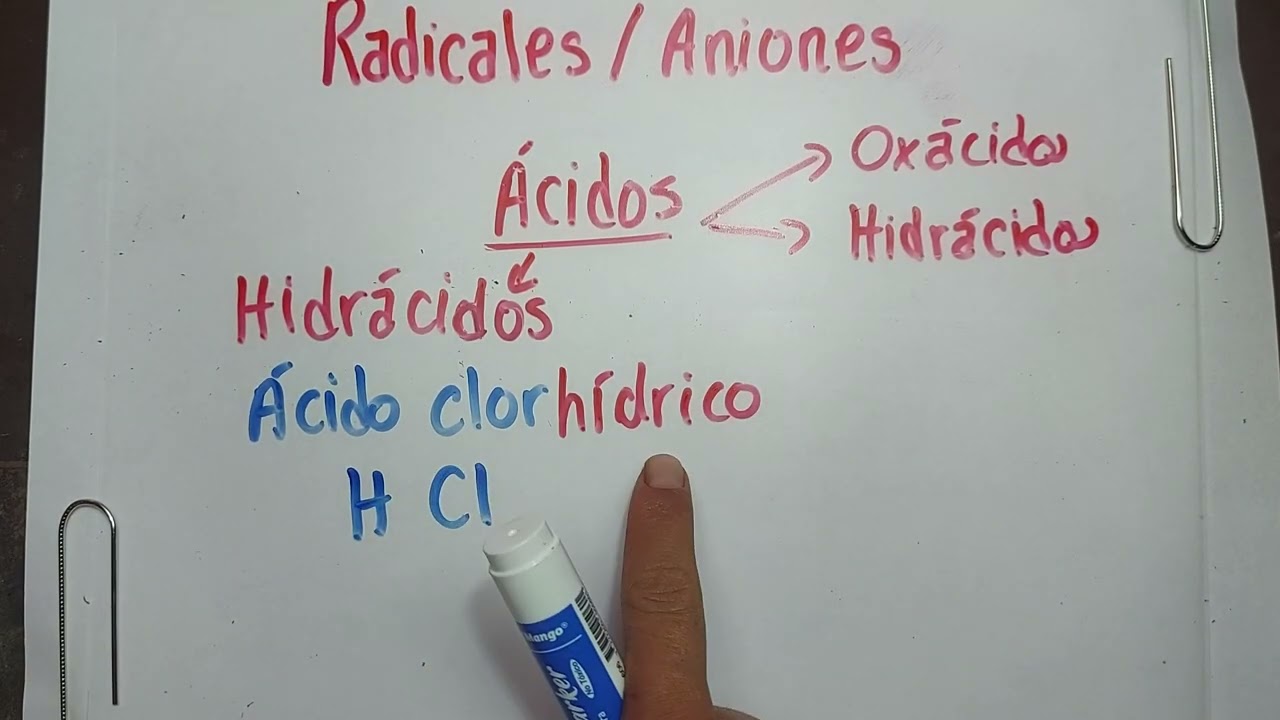 Radicales / Aniones
Ácidos
Oxácidos
Hidrácidos
Hidrácidos
Ácido clorhídrico
H Cl
Mango®
No Tóxico